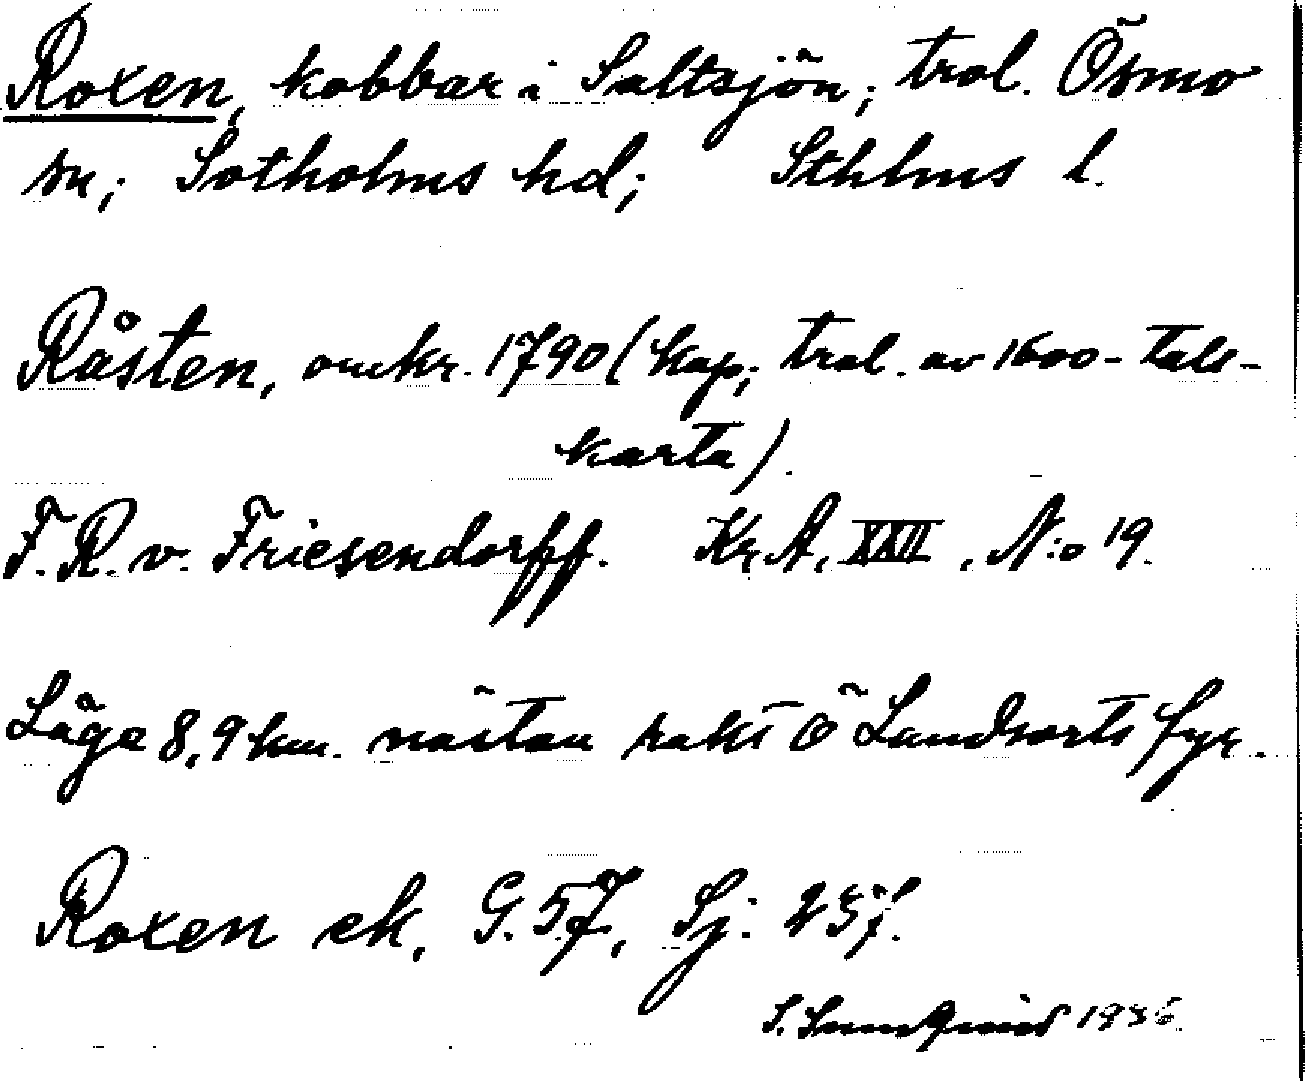 Roxen, kobbar i Saltsjön; trol. Ösmo
sn; Sotholms hd; Sthlms l.
Råsten, omkr. 1790 (kop; trol. av 1600-tals-
karta).
F. R. v. Friesendorff. Kr. A. XXII, N:o 19.
Läge 8,9 km. nästan rakt Ö Landsorts fyr.
Roxen ek. G. 57, Sj: 257.
S. Sundqvist 1936.